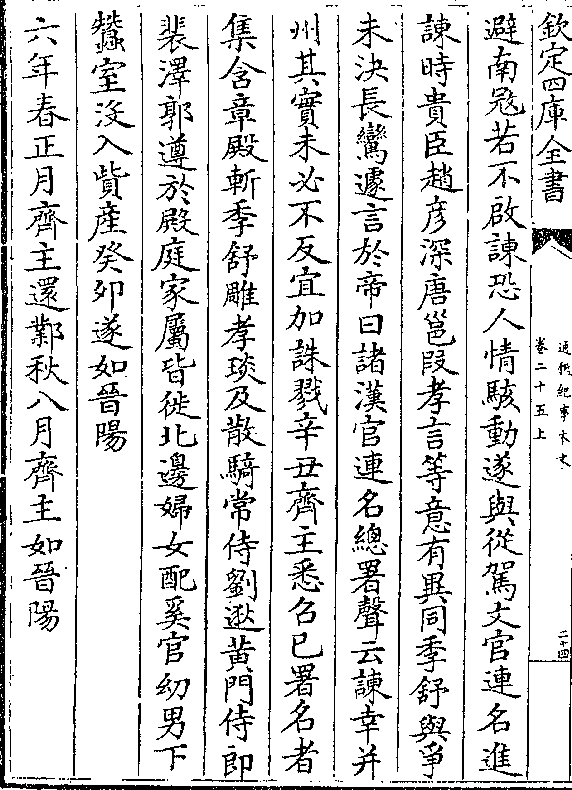 欽定四庫全書
通鑑紀事本末
卷二十五上
二十四
避南冦若不啟諫恐人情駭動遂與從駕文官連名進
諫時貴臣趙彦深唐邕叚孝言等意有異同季舒與爭
未決長鸞遽言於帝曰諸漢官連名總署聲云諫幸并
州其實未必不反宜加誅戮辛丑齊主悉召已署名者
集含章殿斬季舒雕孝琰及散騎常侍劉逖黄門侍郎
裴澤郭遵於殿庭家屬皆徙北邊婦女配奚官幼男下
蠶室沒入貲産癸卯遂如晉陽
六年春正月齊主還鄴秋八月齊主如晉陽